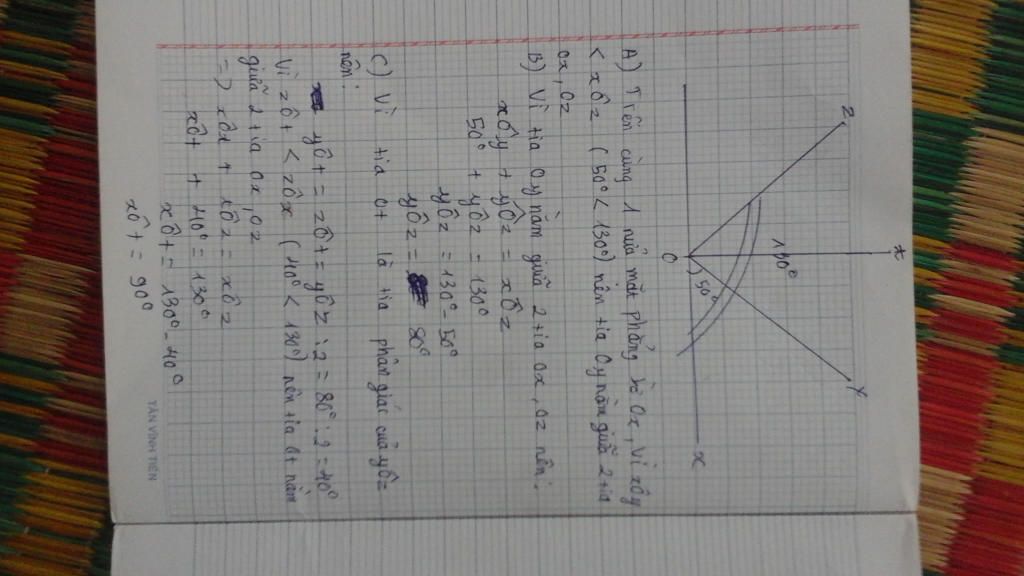 Z
t
Y
130°
50°
O
x
A) Trên cùng 1 nửa mặt phẳng bờ Ox, Vì xÔy
< xÔz (50° < 130°) nên tia Oy nằm giữa 2 tia
Ox, Oz
B) Vì tia Oy nằm giữa 2 tia Ox, Oz nên:
xÔy + yÔz = xÔz
50° + yÔz = 130°
yÔz = 130° - 50°
yÔz = 80°
C) Vì tia Ot là tia phân giác của yÔz
nên:
yÔt = zÔt = yÔz : 2 = 80° : 2 = 40°
Vì zÔt < zÔx (40° < 130°) nên tia Ot nằm
giữa 2 tia Ox, Oz
=) xÔt + tÔz = xÔz
xÔt + 40° = 130°
xÔt = 130° - 40°
xÔt = 90°
TÂN VĨNH TIẾN